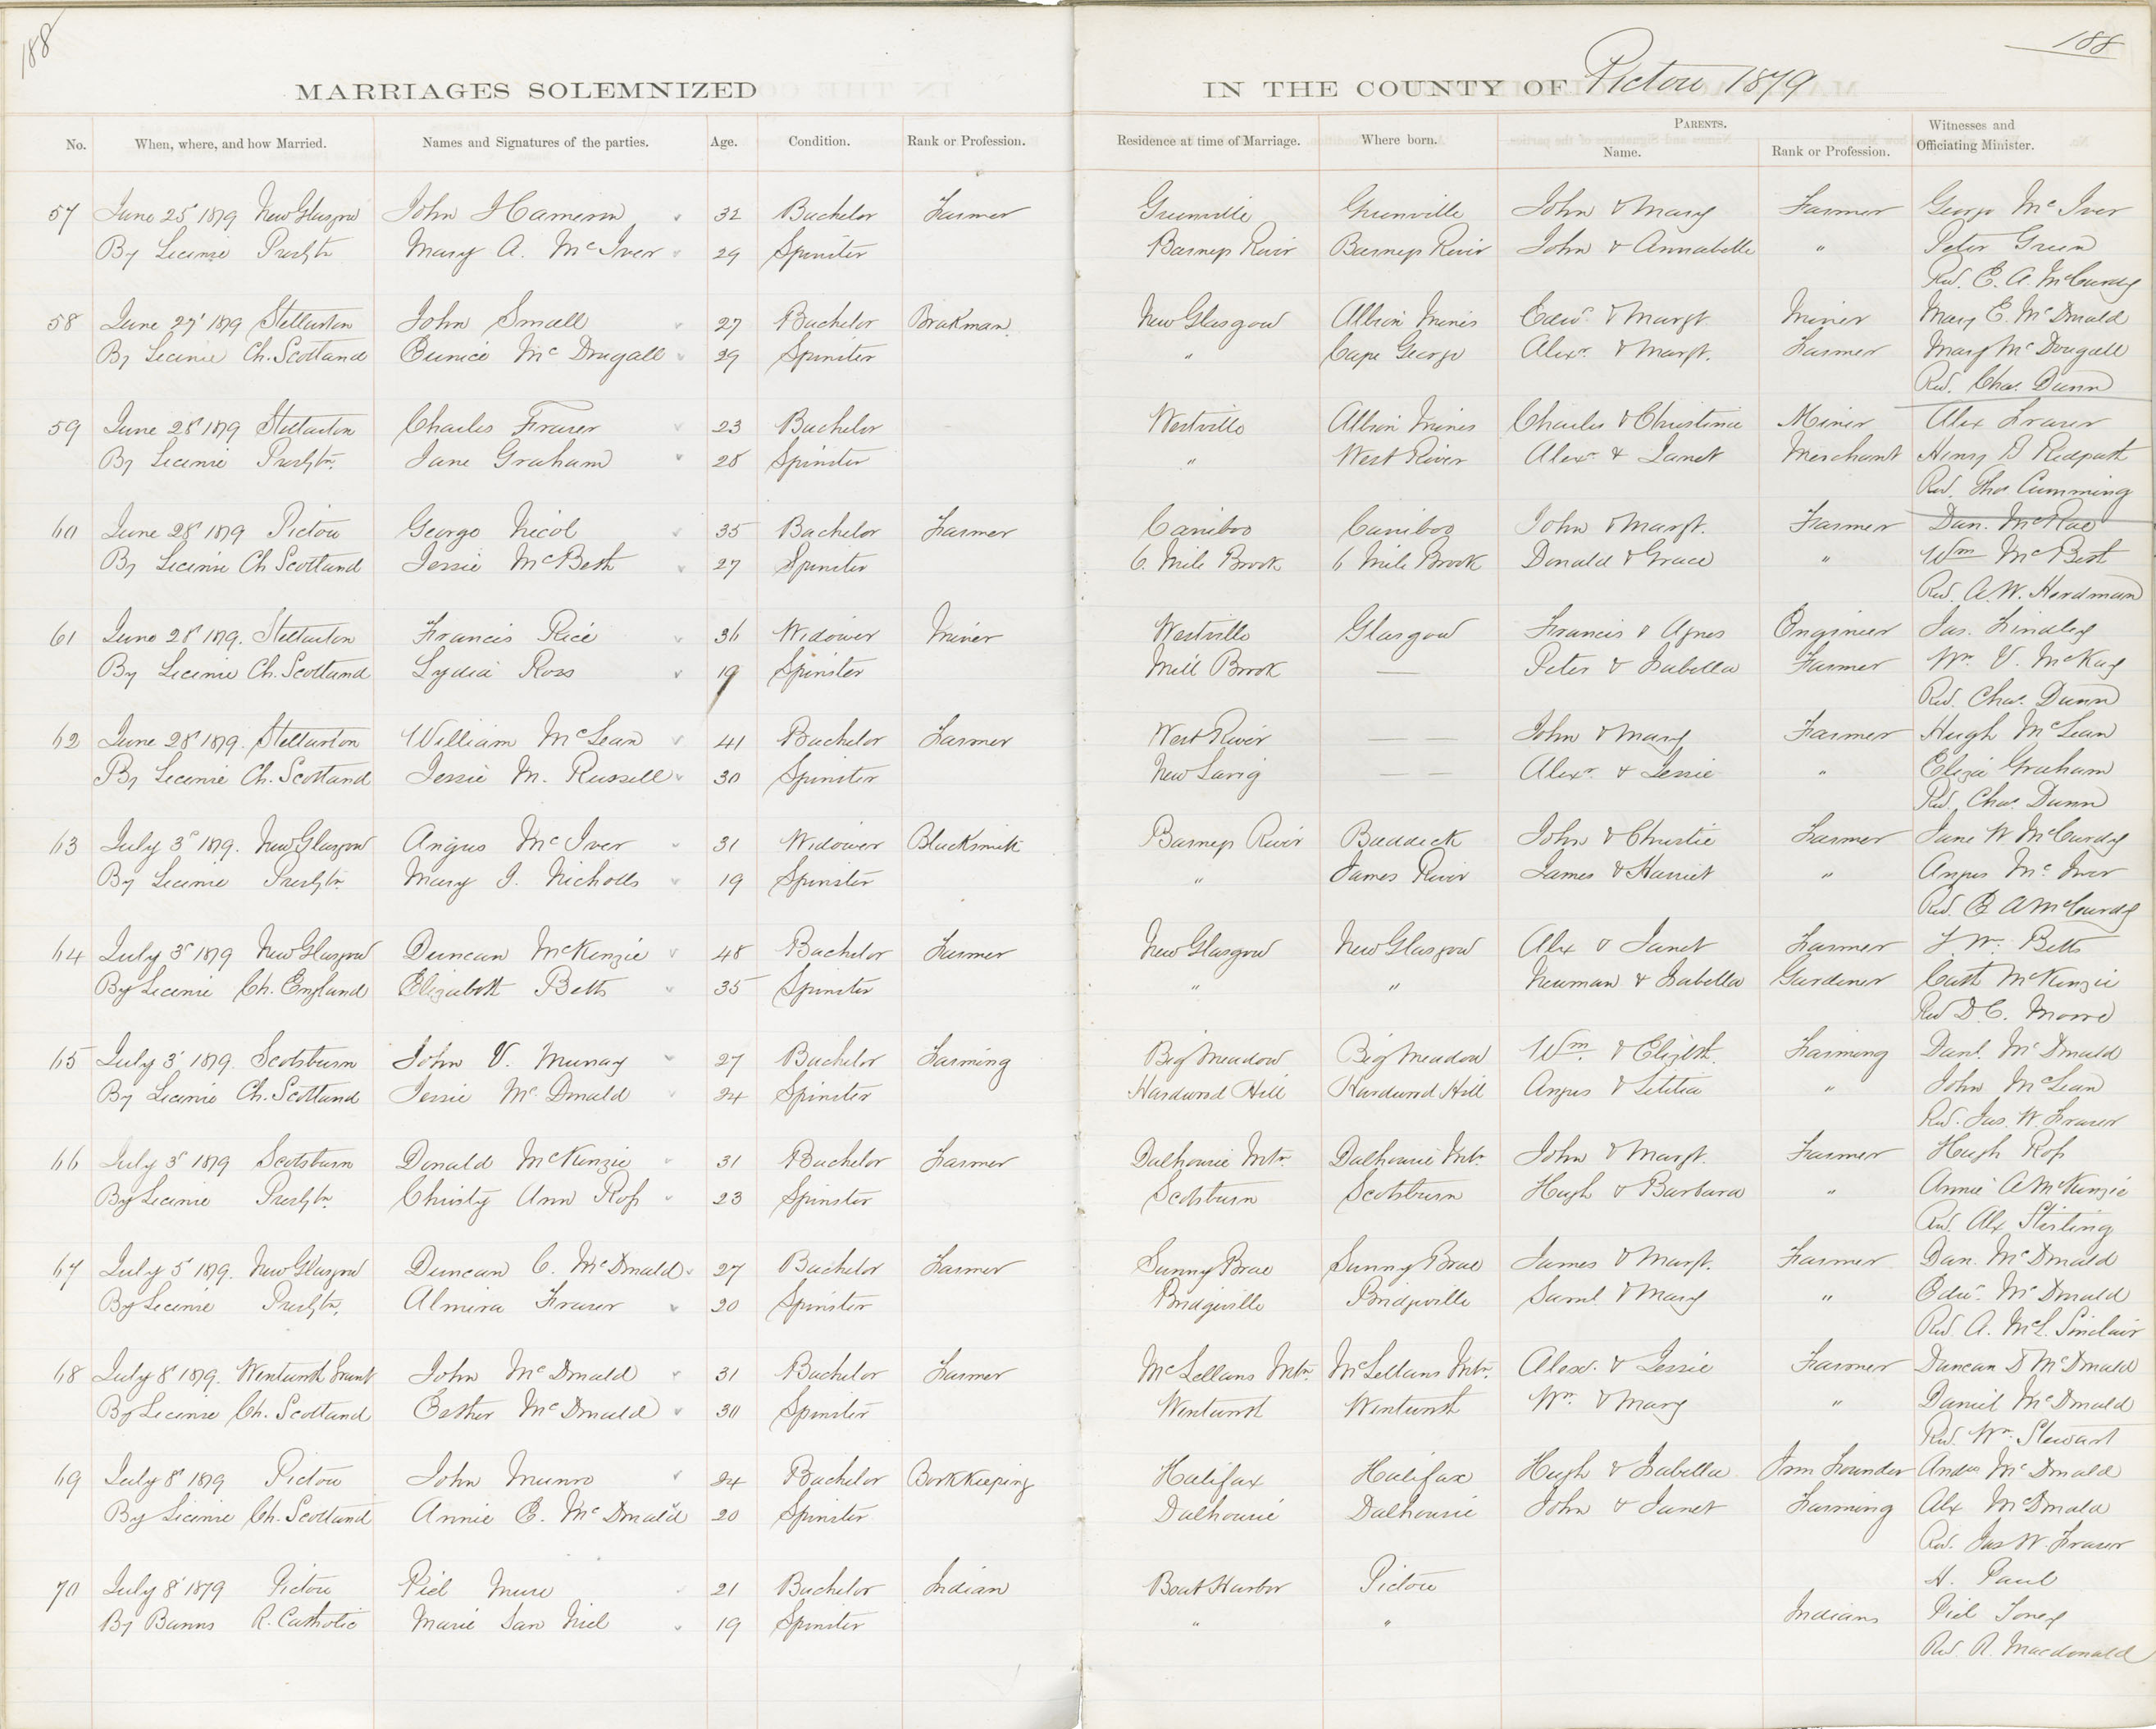 188
188
MARRIAGES SOLEMNIZED IN THE COUNTY OF Pictou 1879
No. When, where, and how Married. Names and Signatures of the parties. Age. Condition. Rank or Profession. Residence at time of Marriage. Where born. PARENTS. Name. Rank or Profession. Witnesses and Officiating Minister.
57 June 25 1879 New Glasgow John H Cameron 32 Bachelor Farmer Greenville Greenville John & Mary Farmer George McIver
By License Presbtn Mary A. McIver 29 Spinster Barneys River Barneys River John & Annabella " Peter Green
Rev. E. A. McCurdy
58 June 27 1879 Stellarton John Small 27 Bachelor Brakman New Glasgow Albion Mines Edwd. & Margt. Miner Mary E. McDonald
By License Ch. Scotland Eunice McDougall 29 Spinster " Cape George Alexr. & Margt. Farmer Mary McDougall
Rev. Chas. Dunn
59 June 28 1879 Stellarton Charles Fraser 23 Bachelor Westville Albion Mines Charles & Christina Miner Alex Fraser
By License Presbtn. Jane Graham 25 Spinster " West River Alexr. & Janet Merchant Henry B Redpath
Rev. Thos Cumming
60 June 28 1879 Pictou George Nicol 35 Bachelor Farmer Cariboo Cariboo John & Margt. Farmer Dan. McRae
By License Ch Scotland Jessie McBeth 27 Spinster 6 Mile Brook 6 Mile Brook Donald & Grace " Wm McBeth
Rev. A. W. Herdman
61 June 28 1879. Stellarton Francis Rice 36 Widower Miner Westville Glasgow Francis & Agnes Engineer Jas. Lindley
By License Ch. Scotland Lydia Ross 19 Spinster Mill Brook — Peter & Isabella Farmer Wm. V. McKay
Rev. Chas. Dunn
62 June 28 1879. Stellarton William McLean 41 Bachelor Farmer West River — — John & Mary Farmer Hugh McLean
By License Ch. Scotland Jessie M. Russell 30 Spinster New Larig — — Alexr. & Jessie " Eliza Graham
Rev. Chas. Dunn
63 July 3 1879. New Glasgow Angus McIver 31 Widower Blacksmith Barneys River Baddeck John & Christie Farmer Jane W McCurdy
By License Presbtn. Mary J. Nicholls 19 Spinster " James River James & Harriet " Angus McIver
Rev. E A McCurdy
64 July 3 1879 New Glasgow Duncan McKenzie 48 Bachelor Farmer New Glasgow New Glasgow Alex & Janet Farmer J Wm. Betts
By License Ch. England Elizabeth Betts 35 Spinster " " Newman & Isabella Gardener Cath McKenzie
Rev D. C. Moore
65 July 3 1879. Scotsburn John V. Murray 27 Bachelor Farming Big Meadow Big Meadow Wm. & Elizbth. Farming Danl. McDonald
By License Ch. Scotland Jessie McDonald 24 Spinster Hardwood Hill Hardwood Hill Angus & Letitia " John McLean
Rev. Jas. W. Fraser
66 July 3 1879 Scotsburn Donald McKenzie 31 Bachelor Farmer Dalhousie Mtn. Dalhousie Mtn. John & Margt. Farmer Hugh Ross
By License Presbtn. Christy Ann Ross 23 Spinster Scotsburn Scotsburn Hugh & Barbara " Annie A McKenzie
Rev. Alx Stirling
67 July 5 1879. New Glasgow Duncan C. McDonald 27 Bachelor Farmer Sunny Brae Sunny Brae James & Margt. Farmer Dan. McDonald
By License Presbtn. Almira Fraser 20 Spinster Bridgeville Bridgeville Saml. & Mary " Edwd. McDonald
Rev. A. McL. Sinclair
68 July 8 1879. Wentworth Grant John McDonald 31 Bachelor Farmer McLellans Mtn. McLellans Mtn. Alexr. & Jessie Farmer Duncan D McDonald
By License Ch. Scotland Esther McDonald 30 Spinster Wentworth Wentworth Wm. & Mary " Daniel McDonald
Rev. Wm. Stewart
69 July 8 1879 Pictou John Munro 24 Bachelor Bookkeeping Halifax Halifax Hugh & Isabella Iron Founder Andw McDonald
By License Ch. Scotland Annie E. McDonald 20 Spinster Dalhousie Dalhousie John & Janet Farming Alx McDonald
Rev. Jas W. Fraser
70 July 8 1879 Pictou Piel Muse 21 Bachelor Indian Boat Harbor Pictou H. Paul
By Banns R. Catholic Marie San Niel 19 Spinster " " Indians Piel Toney
Rev. R. Macdonald